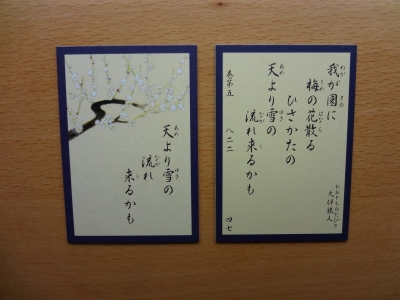 天より雪の
流れ
来るかも
我が園に
梅の花散る
ひさかたの
天より雪の
流れ来るかも
大伴旅人
巻第五 八二二
四七